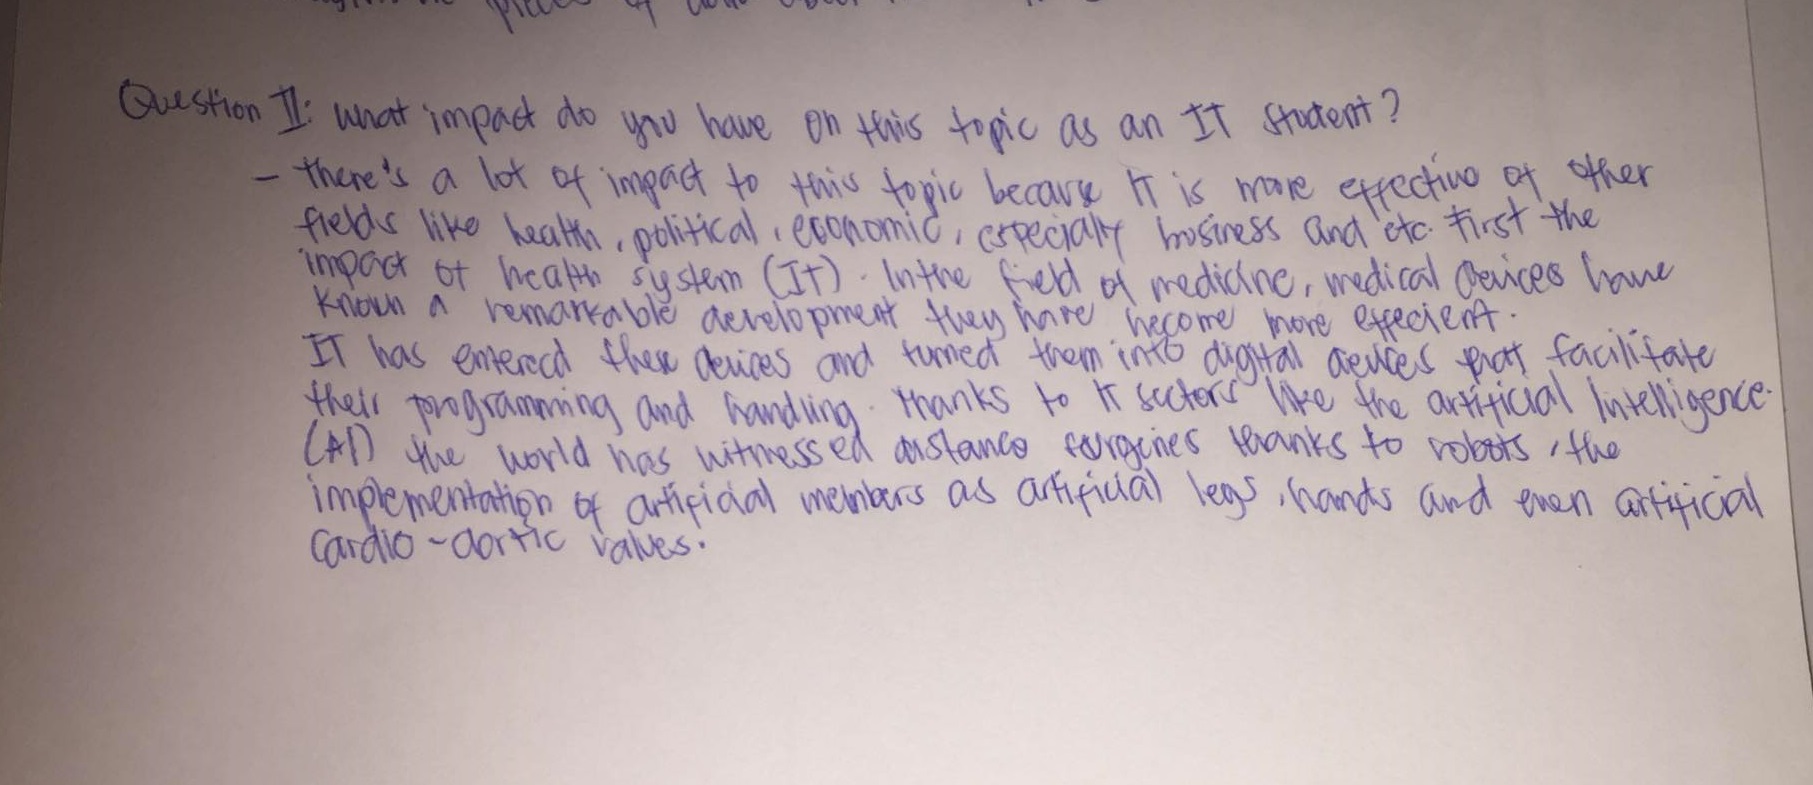 pieces of
Question II: What impact do you have on this topic as an IT student?
- there's a lot of impact to this topic because it is more effective of other
fields like health, political, economic, especially business and etc. First the
impact of health system (IT). In the field of medicine, medical devices have
known a remarkable development they have become more effecient.
IT has entered these devices and turned them into digital devices that facilitate
their programming and handling. Thanks to it sectors like the artificial Intelligence.
(AI) the world has witnessed distance surgeries thanks to robots, the
implementation of artificial members as artificial legs, hands and even artificial
Cardio-aortic valves.